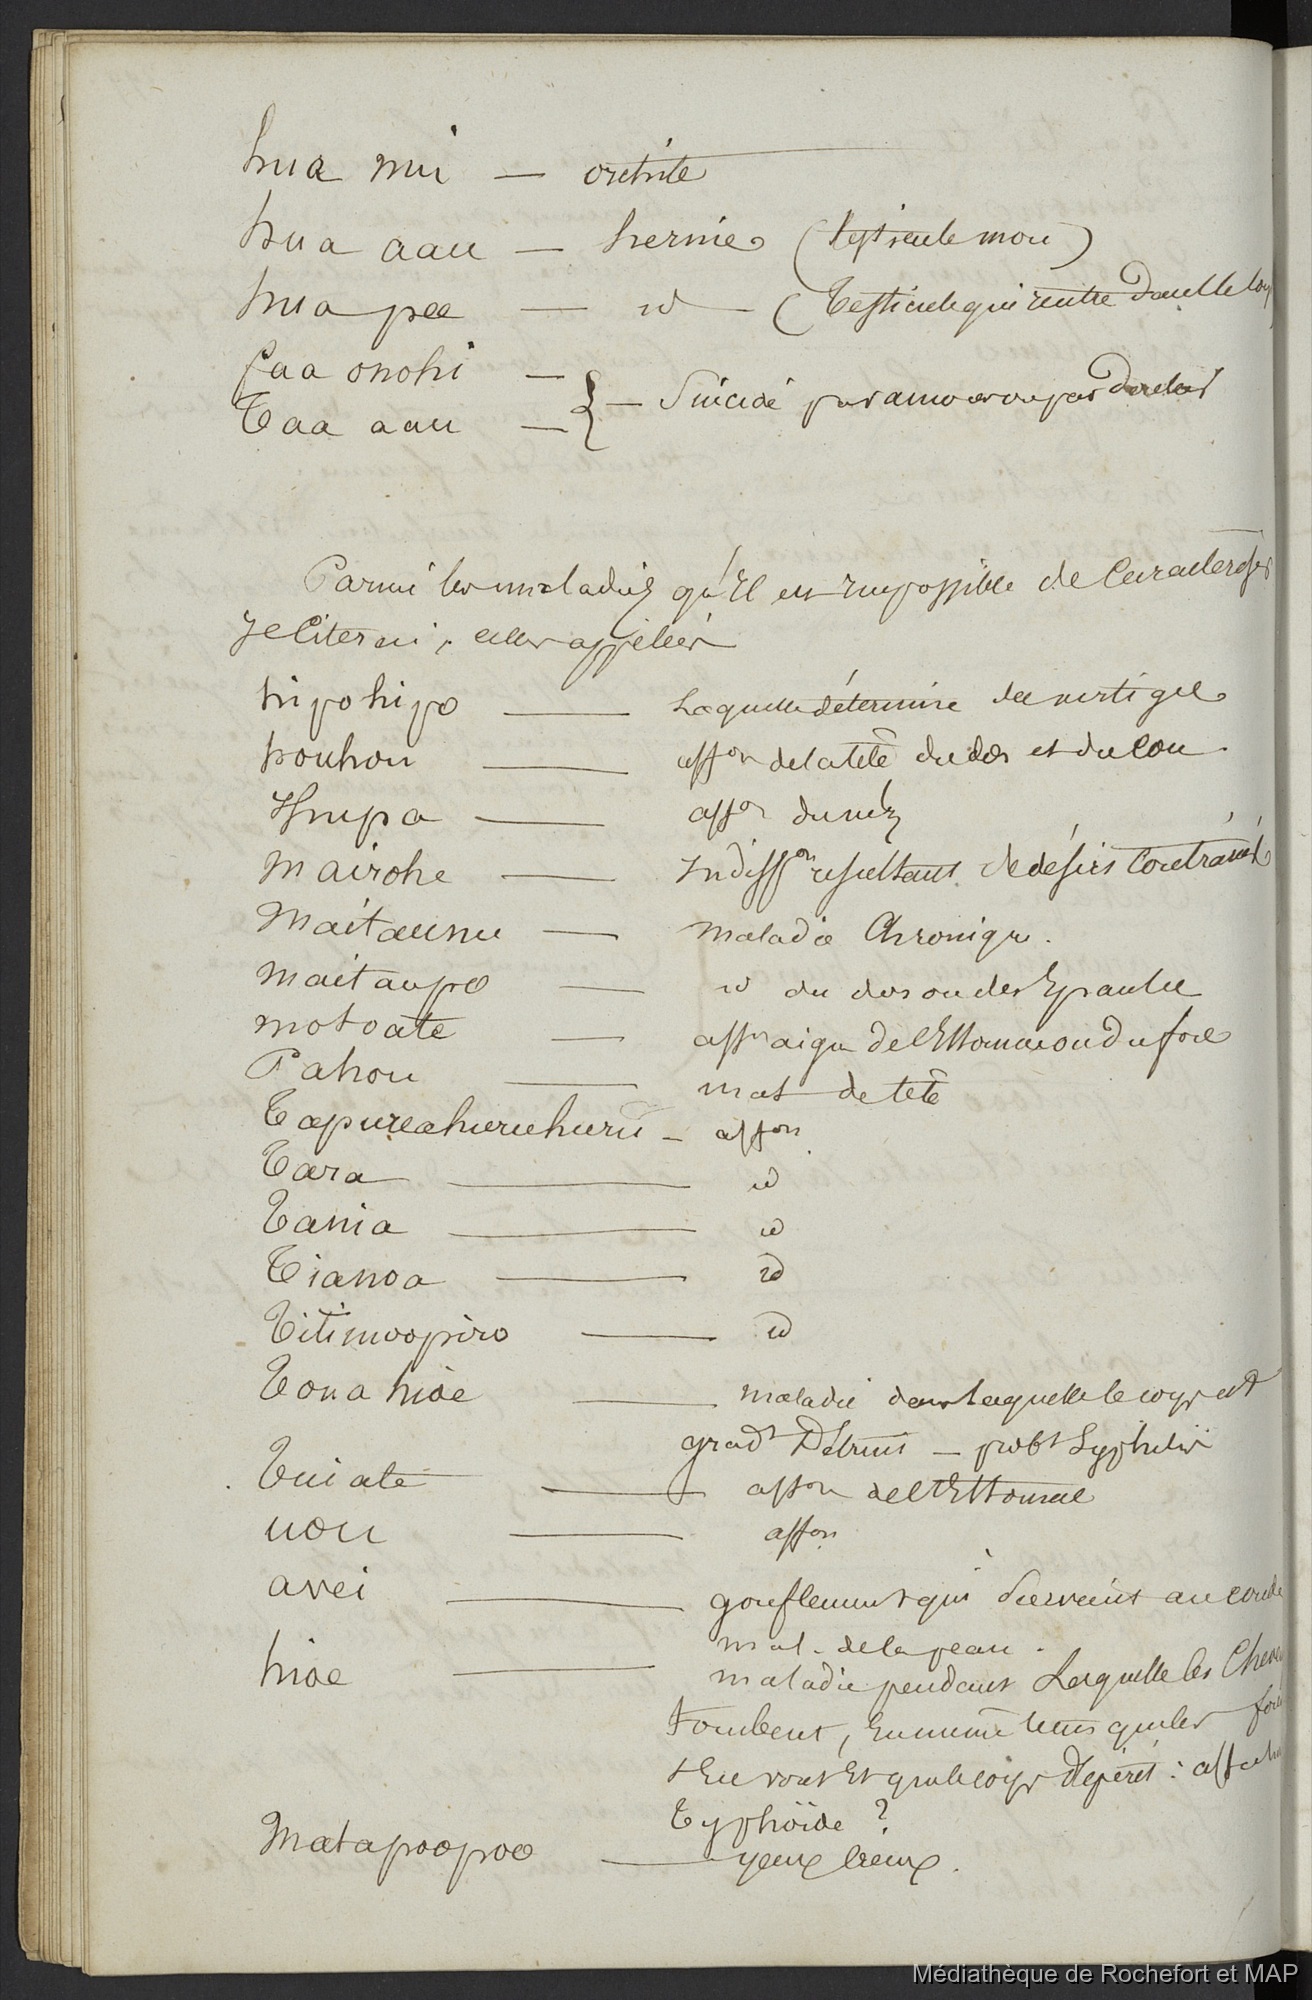 hua mii — orchite
hua aau — hernie (testicule mou)
hua pee — id — (testicule qui rentre dans le
Taa onohi —
Taa aau — } — Suicide par amour ou par douleur
Parmi les maladies qu'il est impossible de caracteriser
je citerai, celles appelées
hipohipo — Laquelle détermine des vertiges
houhou — affon de la tête du dos et du cou.
Ihupa — affon du néz
mairohe — Indisson resultant de désirs contrariés
maitaunu — maladie Chronique.
maitaupe — id du dos ou des Epaules
motoate — affon aigue de l'Estomac ou du foie
Pahou — mal de tête
Tapureahuruhuru — affon
Tara — id
Tania — id
Tianoa — id
Titimoopiro — id
Tona hioe — maladie dans laquelle le corps est
gradt Détruit — probt Syphilis
Tui ate — affon de l'Estomac
uou — affon
avei — gonflement qui survient au coude
mal. de la peau.
hioe — maladie pendant Laquelle les
tombent, En même tems que les
s'En vont Et que le corps dépérit :
Typhöide ?
Matapoopoo — yeux creux.
Médiathèque de Rochefort et MAP